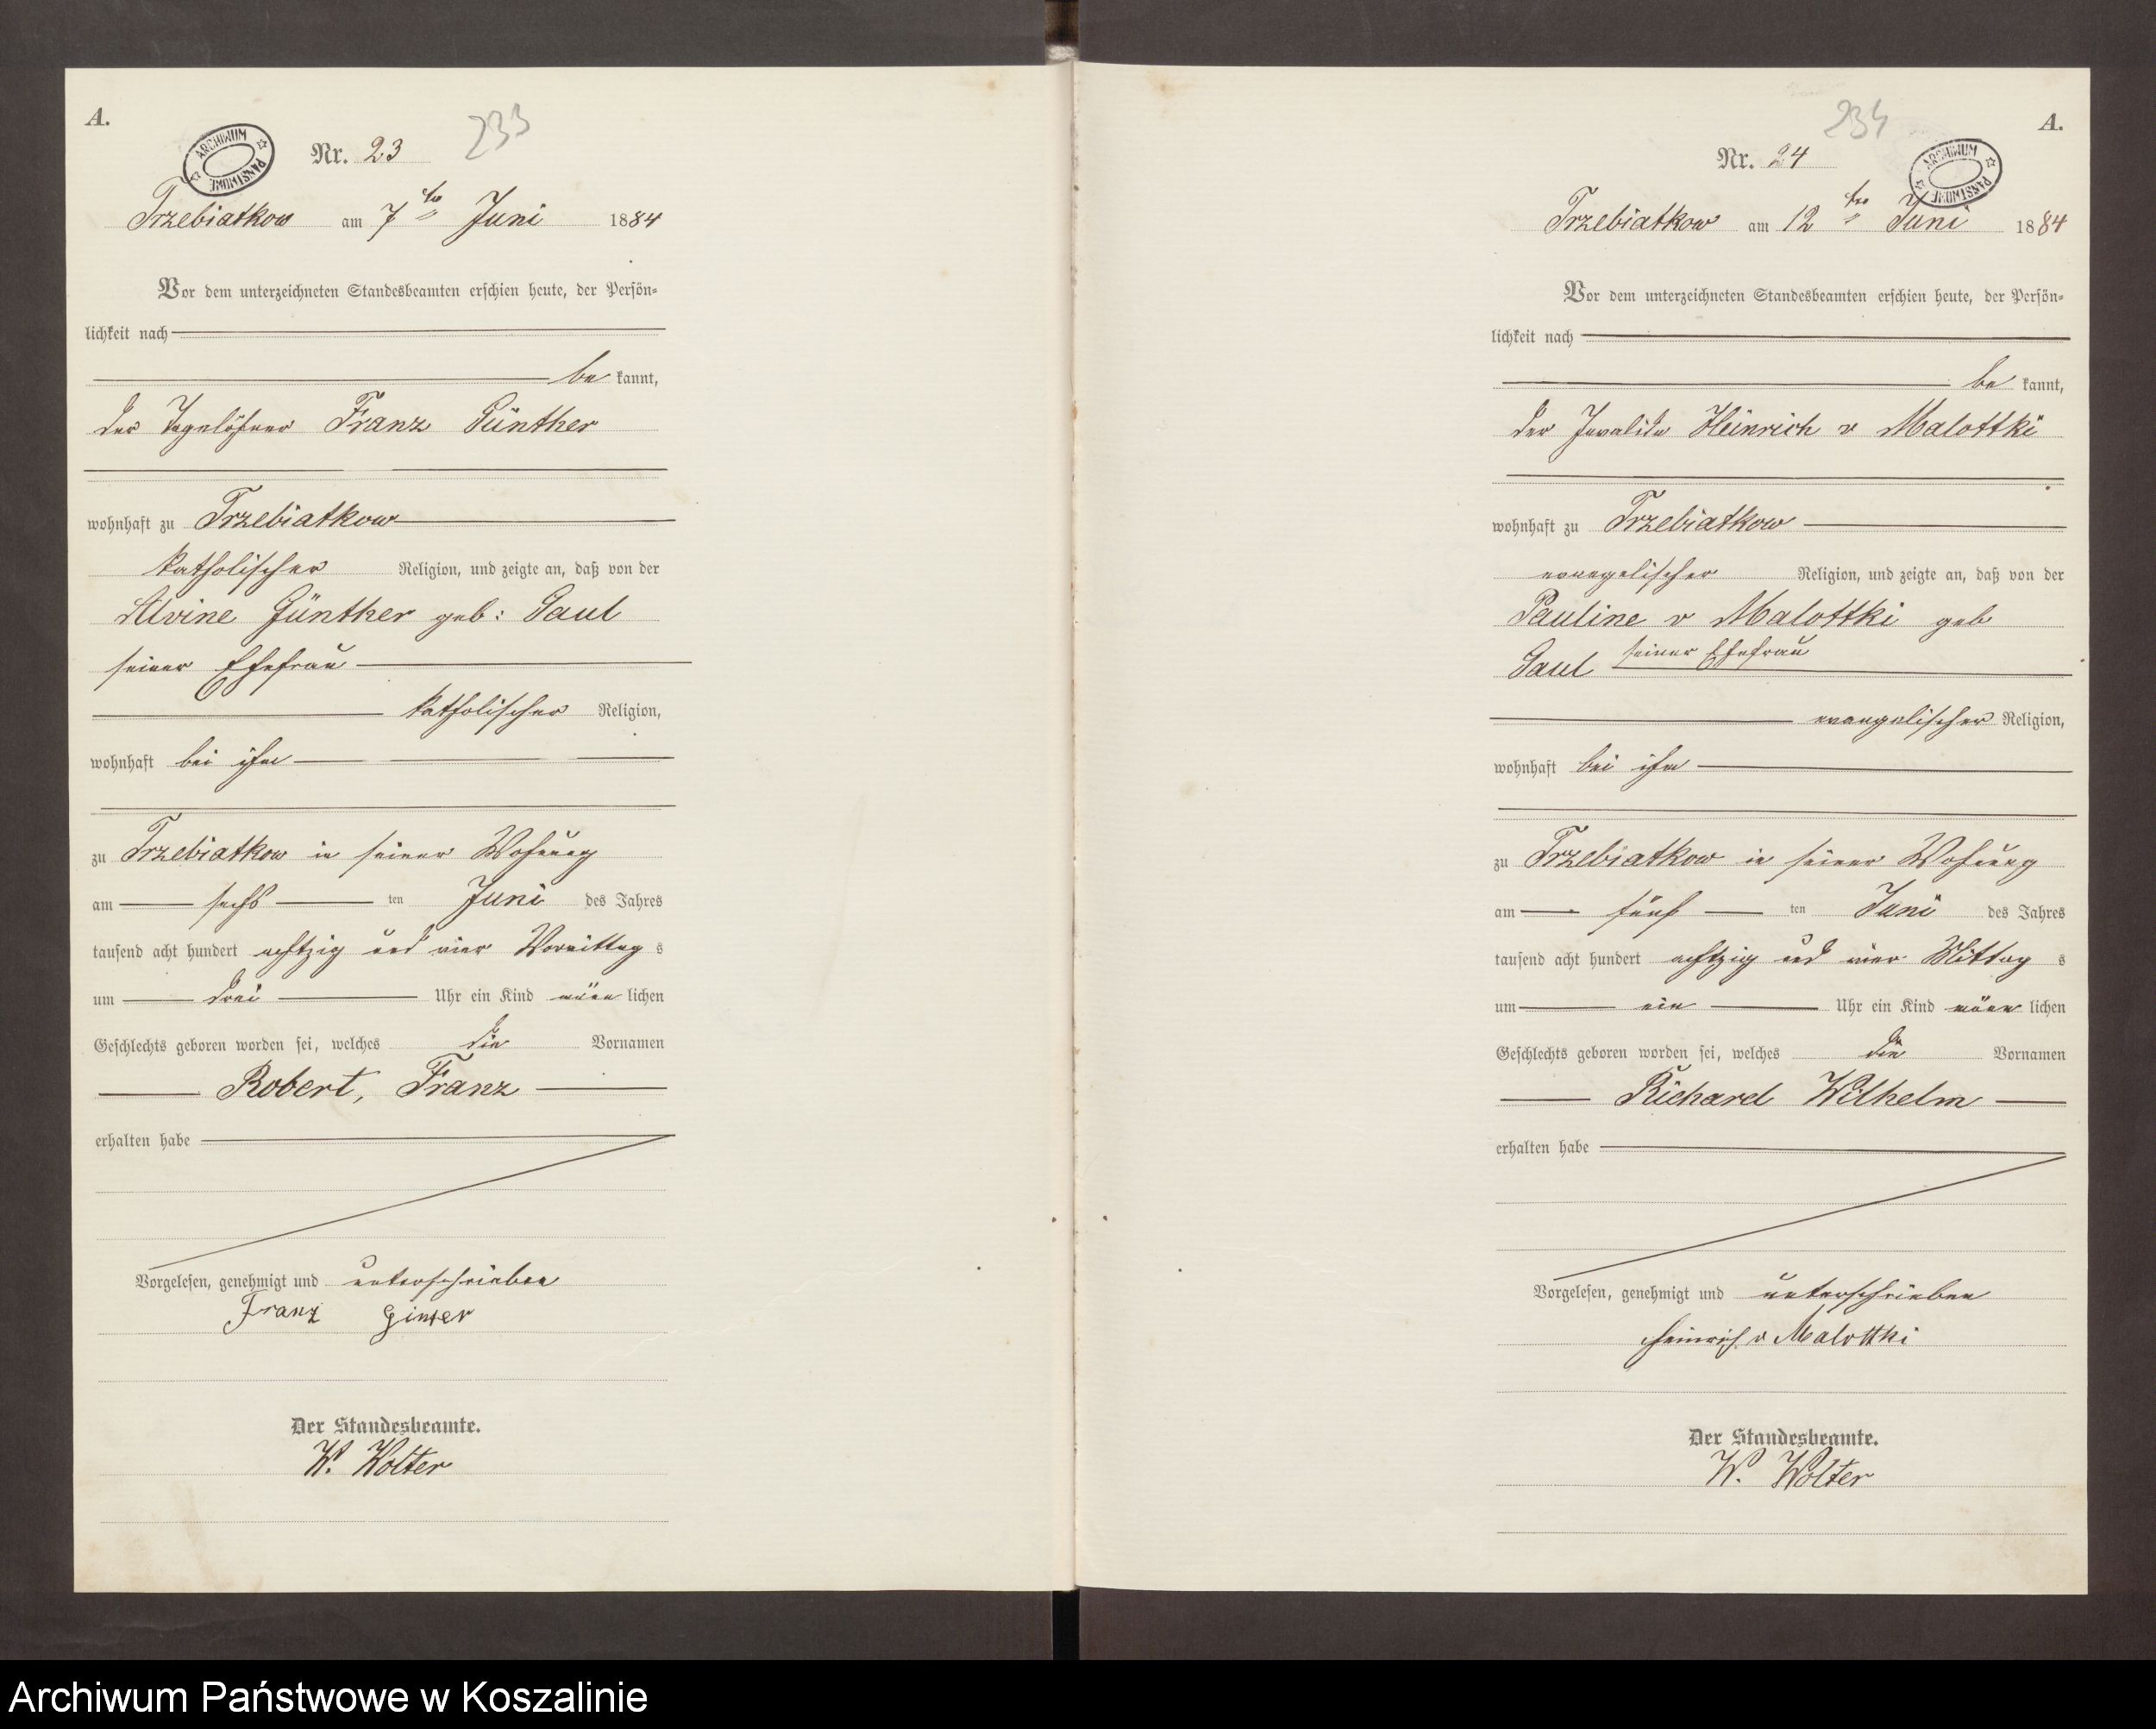 A.
ARCHIWUM PAŃSTWOWE
Nr. 23
233
Trzebiatkow am 7ten Juni 1884
Vor dem unterzeichneten Standesbeamten erschien heute, der Persön-
lichkeit nach
be kannt,
der Tagelöhner Franz Günther
wohnhaft zu Trzebiatkow
katholischer Religion, und zeigte an, daß von der
Alvine Günther geb: Gaul
seiner Ehefrau
katholischer Religion,
wohnhaft bei ihm
zu Trzebiatkow in seiner Wohnung
am sechs ten Juni des Jahres
tausend acht hundert achtzig und vier Vormittag s
um drei Uhr ein Kind männ lichen
Geschlechts geboren worden sei, welches die Vornamen
Robert, Franz
erhalten habe
Vorgelesen, genehmigt und unterschrieben
Franz Ginter
Der Standesbeamte.
W. Wolter
234
A.
Nr. 24
ARCHIWUM PAŃSTWOWE
Trzebiatkow am 12ten Juni 1884
Vor dem unterzeichneten Standesbeamten erschien heute, der Persön-
lichkeit nach
be kannt,
der Invalide Heinrich v Malottki
wohnhaft zu Trzebiatkow
evangelischer Religion, und zeigte an, daß von der
Pauline v Malottki geb
Gaul seiner Ehefrau
evangelischer Religion,
wohnhaft bei ihm
zu Trzebiatkow in seiner Wohnung
am fünf ten Juni des Jahres
tausend acht hundert achtzig und vier Mittag s
um ein Uhr ein Kind männ lichen
Geschlechts geboren worden sei, welches die Vornamen
Richard Wilhelm
erhalten habe
Vorgelesen, genehmigt und unterschrieben
Heinrich v Malottki
Der Standesbeamte.
W. Wolter
Archiwum Państwowe w Koszalinie